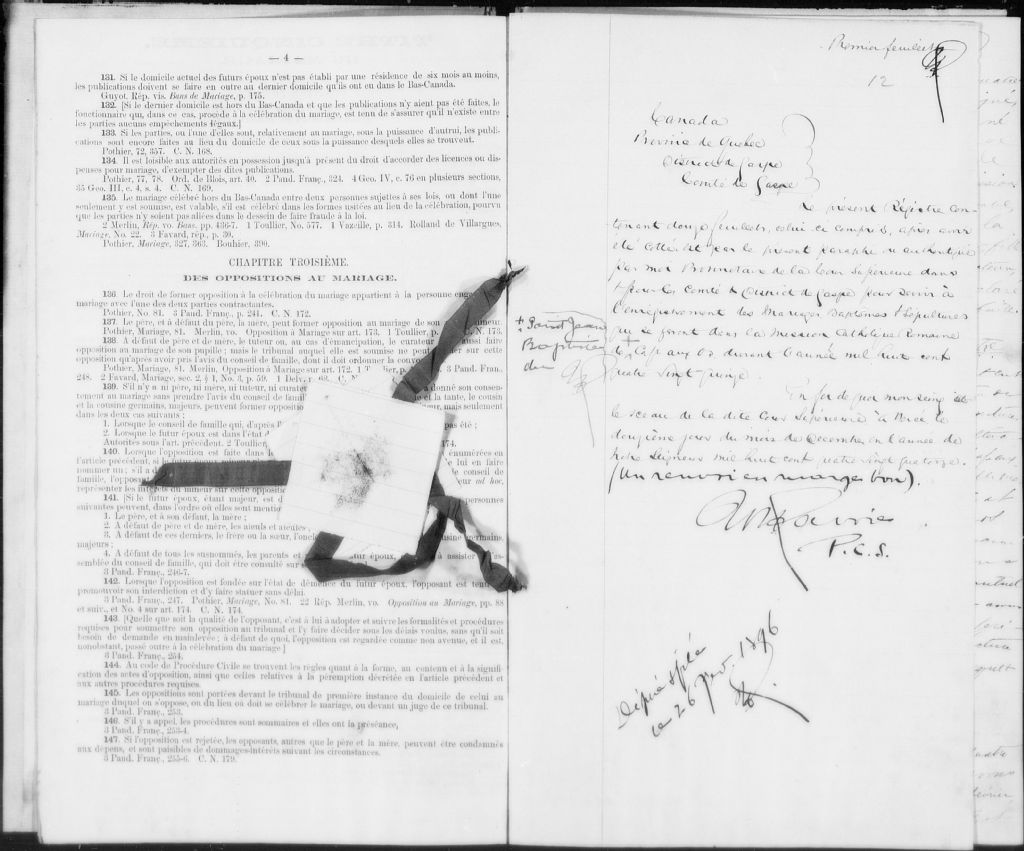 — 4 —
131. Si le domicile actuel des futurs époux n'est pas établi par une résidence de six mois au moins,
les publications doivent se faire en outre au dernier domicile qu'ils ont eu dans le Bas-Canada.
Guyot, Rép. vis. Bans de Mariage, p. 175.
132. [Si le dernier domicile est hors du Bas-Canada et que les publications n'y aient pas été faites, le
fonctionnaire qui, dans ce cas, procède à la célébration du mariage, est tenu de s'assurer qu'il n'existe entre
les parties aucuns empêchements légaux.]
133. Si les parties, ou l'une d'elles sont, relativement au mariage, sous la puissance d'autrui, les publi-
cations sont encore faites au lieu du domicile de ceux sous la puissance desquels elles se trouvent.
Pothier, 72, 357. C. N. 168.
134. Il est loisible aux autorités en possession jusqu'à présent du droit d'accorder des licences ou dis-
penses pour mariage, d'exempter des dites publications.
Pothier, 77, 78. Ord. de Blois, art. 40. 2 Pand. Franç., 324. 4 Geo. IV, c. 76 en plusieurs sections,
35 Geo. III, c. 4, s. 4. C. N. 169.
135. Le mariage célébré hors du Bas-Canada entre deux personnes sujettes à ses lois, ou dont l'une
seulement y est soumise, est valable, s'il est célébré dans les formes usitées au lieu de la célébration, pourvu
que les parties n'y soient pas allées dans le dessein de faire fraude à la loi.
2 Merlin, Rép. vo. Bans, pp. 436-7. 1 Toullier, No. 577. 1 Vazeille, p. 314. Rolland de Villargues,
Mariage, No. 22. 3 Favard, rép., p. 30.
Pothier, Mariage, 327, 363. Bouhier, 390.
CHAPITRE TROISIÈME.
DES OPPOSITIONS AU MARIAGE.
136. Le droit de former opposition à la célébration du mariage appartient à la personne
mariage avec l'une des deux parties contractantes.
Pothier, No. 81. 3 Pand. Franç., p. 241. C. N. 172.
137. Le père, et à défaut du père, la mère, peut former opposition au mariage de son mineur.
Pothier, Mariage, 81. Merlin, vo. Opposition à Mariage sur art. 173. 1 Toullier, p. N. 173.
138. A défaut de père et de mère, le tuteur ou, au cas d'émancipation, le curateur aussi faire
opposition au mariage de son pupille; mais le tribunal auquel elle est soumise ne peut sur cette
opposition qu'après avoir pris l'avis du conseil de famille, dont il doit ordonner la
Pothier, Mariage, 81. Merlin, Opposition à Mariage sur art. 172. p. 3 Pand. Fran.,
248. 2 Favard, Mariage, sec. 2, § 1, No. 3, p. 59.
139. S'il n'y a ni père, ni mère, ni tuteur, ni a donné son consen-
tement au mariage sans prendre l'avis du conseil de et la tante, le cousin
et la cousine germains, majeurs, peuvent former mais seulement
dans les deux cas suivants :
1. Lorsque le conseil de famille qui, d'après pas été ;
2. Lorsque le futur époux est dans l'état
Autorités sous l'art. précédent. 2 Toullier, 174.
140. Lorsque l'opposition est faite dans énumérées en
l'article précédent, si le futur époux le lui en faire
nommer un ; s'il a le conseil de
famille, ad hoc,
représenter les intérêts du mineur sur cette opposition
141. [Si le futur époux, étant majeur, est personnes
suivantes peuvent, dans l'ordre où elles sont
1. Le père, et à son défaut, la mère ;
2. A défaut de père et de mère, les aïeuls et aïeules ;
3. A défaut de ces derniers, le frère ou la sœur, germains,
majeurs ;
4. A défaut de tous les susnommés, les parents et époux, à assister à l'as-
semblée du conseil de famille, qui doit être consulté sur
3 Pand. Franç., 246-7.
142. Lorsque l'opposition est fondée sur l'état de démence du futur époux, l'opposant est tenu
promouvoir son interdiction et d'y faire statuer sans délai.
3 Pand. Franç., 247. Pothier, Mariage, No. 81. 22 Rép. Merlin, vo. Opposition au Mariage, pp. 88
et suiv., et No. 4 sur art. 174. C. N. 174.
143. [Quelle que soit la qualité de l'opposant, c'est à lui à adopter et suivre les formalités et procédures
requises pour soumettre son opposition au tribunal et l'y faire décider sous les délais voulus, sans qu'il soit
besoin de demande en mainlevée ; à défaut de quoi, l'opposition est regardée comme non avenue, et il est,
nonobstant, passé outre à la célébration du mariage.]
3 Pand. Franç., 254.
144. Au code de Procédure Civile se trouvent les règles quant à la forme, au contenu et à la signifi-
cation des actes d'opposition, ainsi que celles relatives à la péremption décrétée en l'article précédent et
aux autres procédures requises.
145. Les oppositions sont portées devant le tribunal de première instance du domicile de celui au
mariage duquel on s'oppose, ou du lieu où doit se célébrer le mariage, ou devant un juge de ce tribunal.
3 Pand. Franç., 253.
146. S'il y a appel, les procédures sont sommaires et elles ont la préséance,
3 Pand. Franç., 253-4.
147. Si l'opposition est rejetée, les opposants, autres que le père et la mère, peuvent être condamnés
aux dépens, et sont passibles de dommages-intérêts suivant les circonstances.
3 Pand. Franç., 255-6. C. N. 179.
Premier feuillet
12
Canada
Province de Quebec
District de Gaspé
Comté de Gaspé
Le présent Régistre con-
tenant douze feuillets, celui-ci compris, après avoir
été coté et par le présent paraphé et authentiqué
par moi Protonotaire de la Cour Supérieure dans
+ pour les Comté & District de Gaspé pour servir à
l'enregistrement des Mariages Baptêmes & Sépultures
qui se feront dans la Mission Catholique Romaine
de + Cap aux Os durant l'année mil huit cent
quatre vingt quinze.
+ Saint Jean
Baptiste
du
En foi de quoi mon seing et
le sceau de la dite Cour Supérieure à Percé le
douzième jour du mois de Décembre en l'année de
Notre Seigneur mil huit cent quatre vingt quatorze.
(Un renvoi en marge bon).
P.C.S.
ce 26 1896